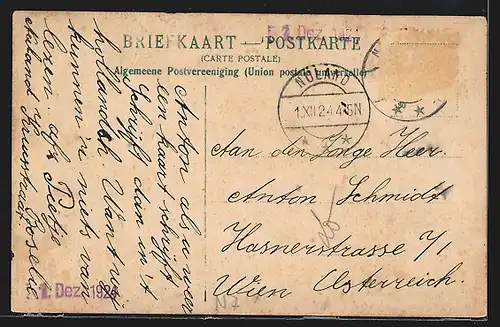 BRIEFKAART — POSTKARTE
(CARTE POSTALE)
Algemeene Postvereeniging (Union postale universelle)
Dez. 192
NULAND
1.XII 24 4-5N
Aan den Jonge Heer.
Anton Schmidt
Hasnerstrasse
Wien Österreich.
Anton als u weer
een kaart schrijft
Schrijft dan in't
hollandsch Want wij
kunnen 'n niets van
lezen
1. Dez. 192